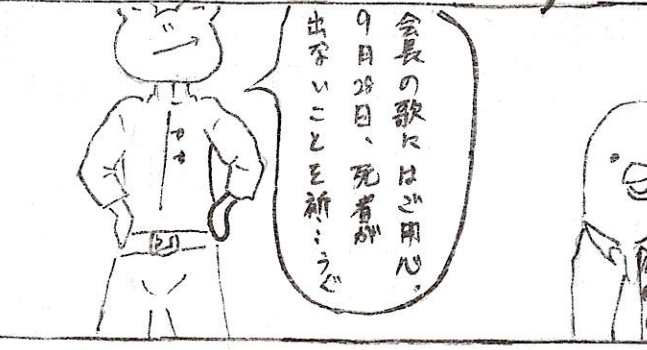 会長の歌にはご用心。
9月28日、死者が
出ないことを祈…うぐ